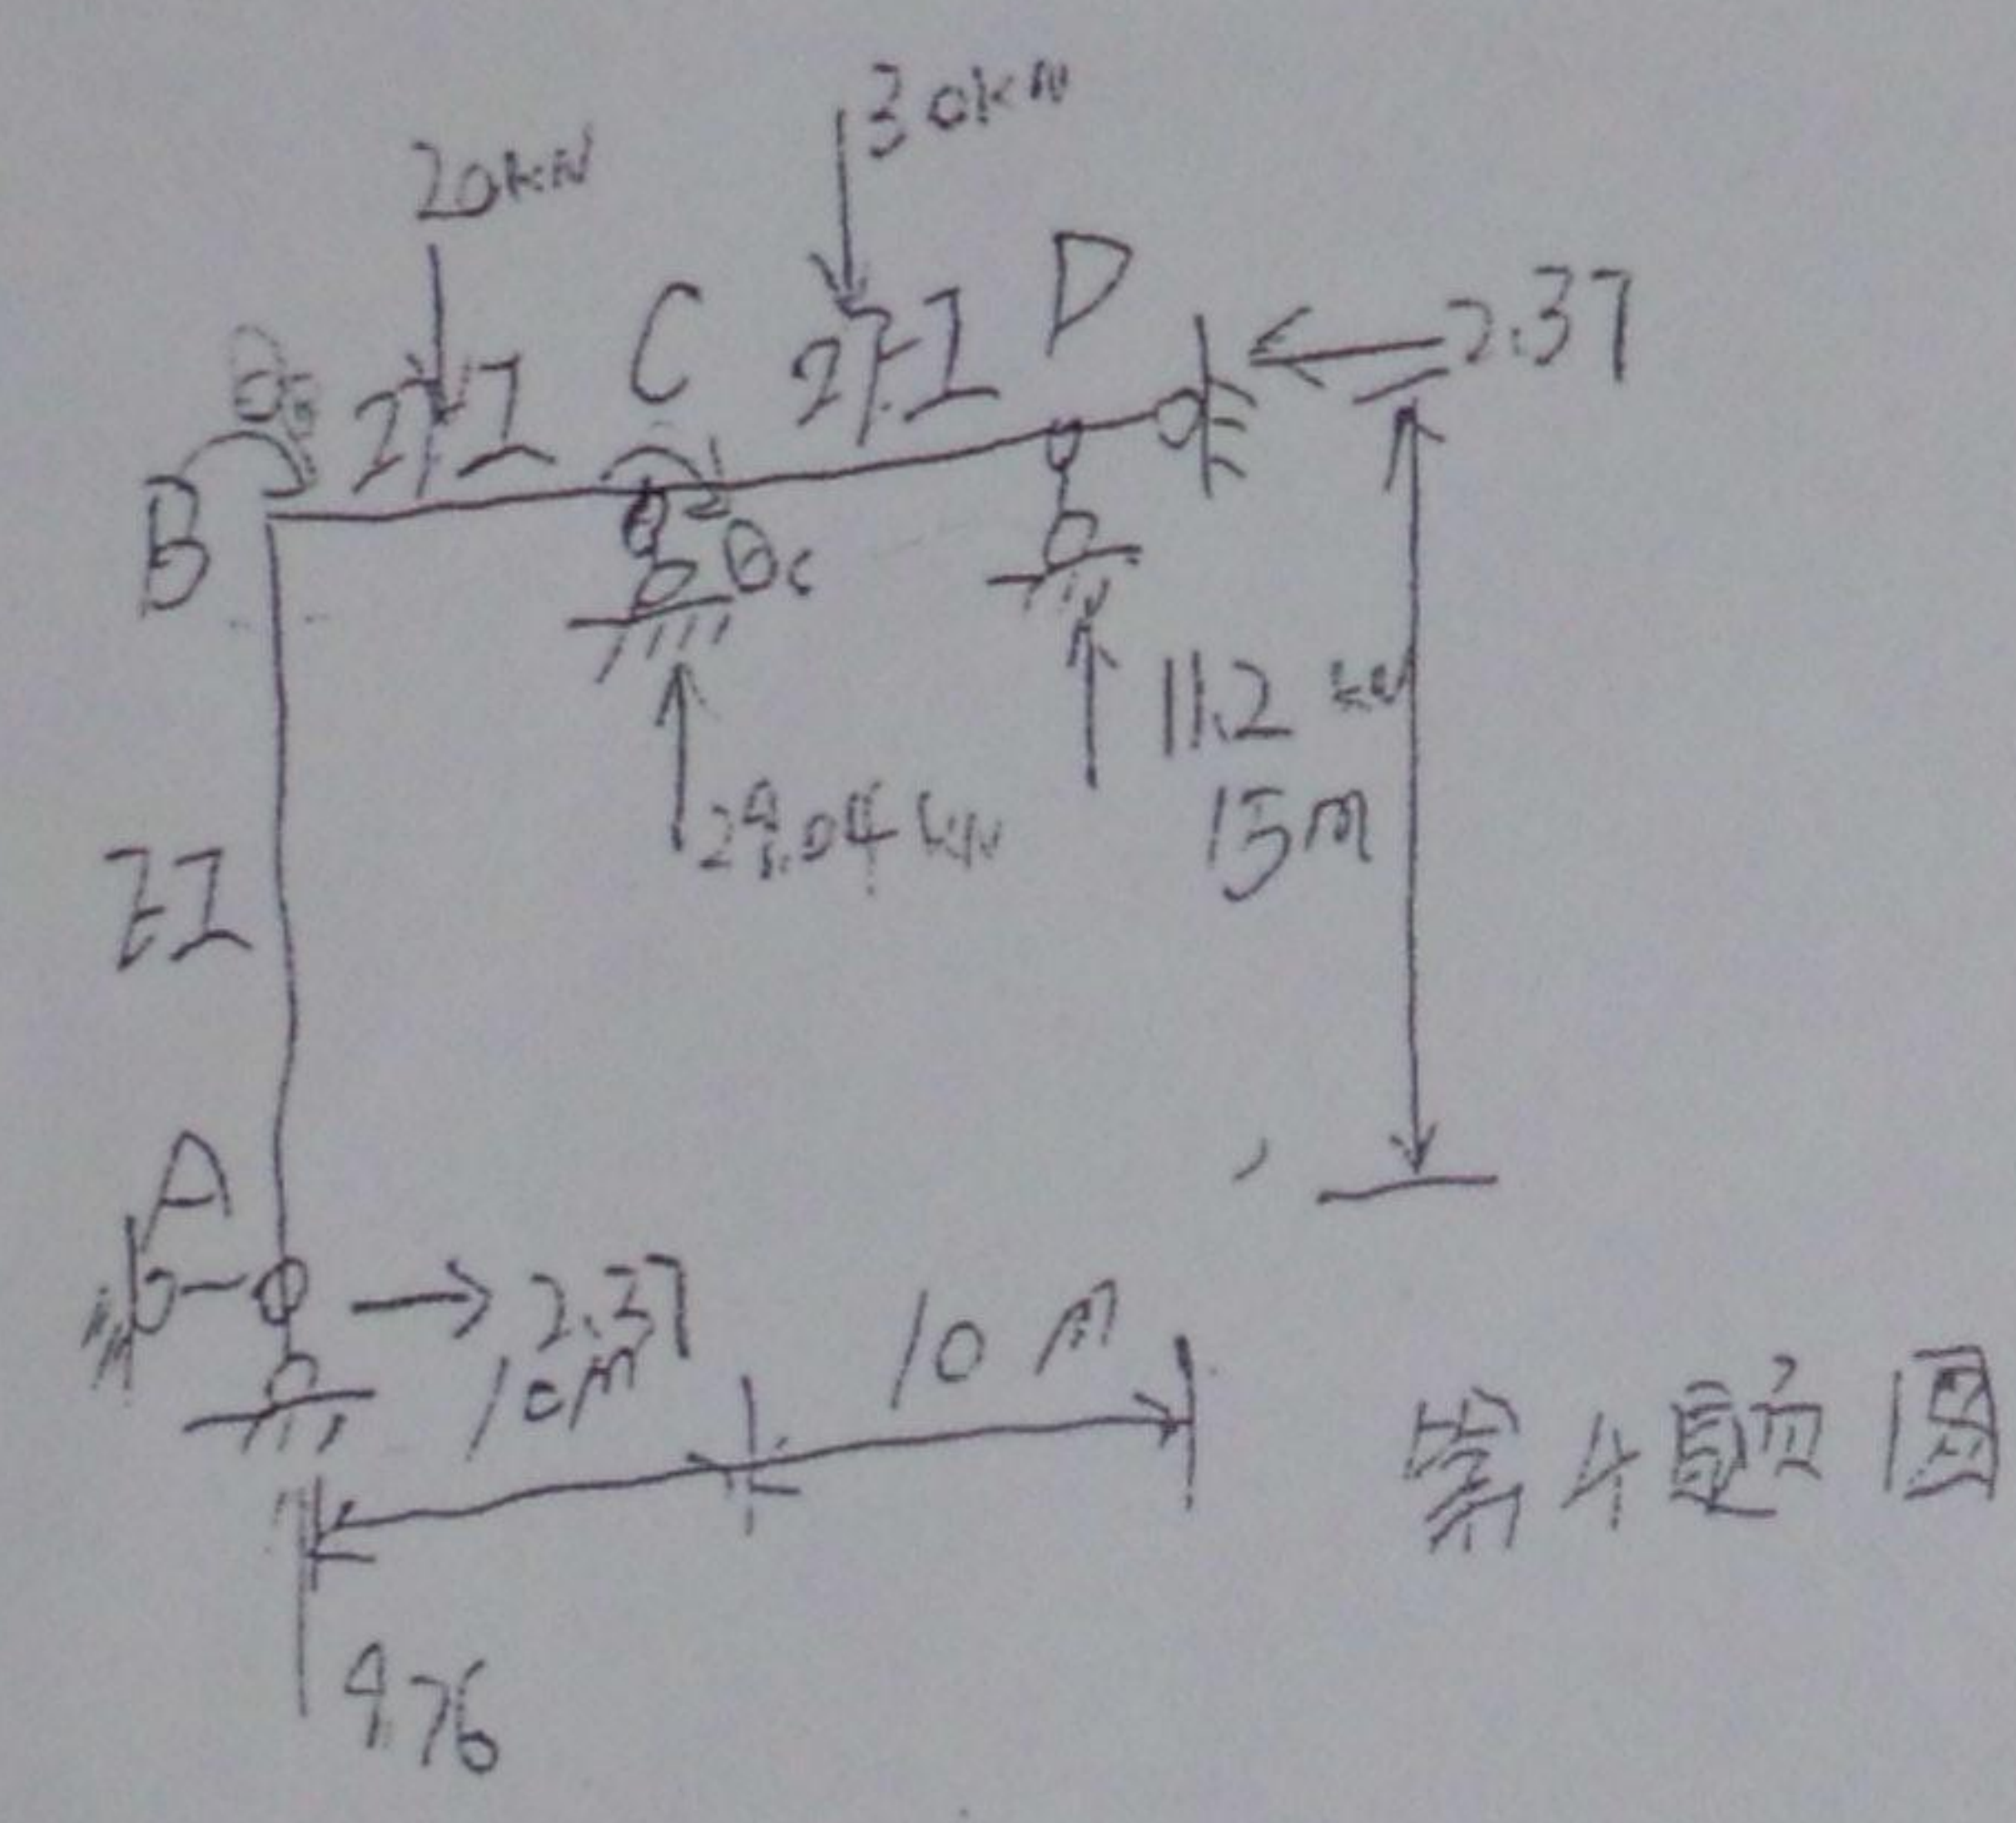 30kN
20kN
D
C
2.37
2EI
θB
2EI
B
θc
11.2 kN
29.04 kN
15m
EI
A
2.37
10m
10 m
第4題圖
9.76